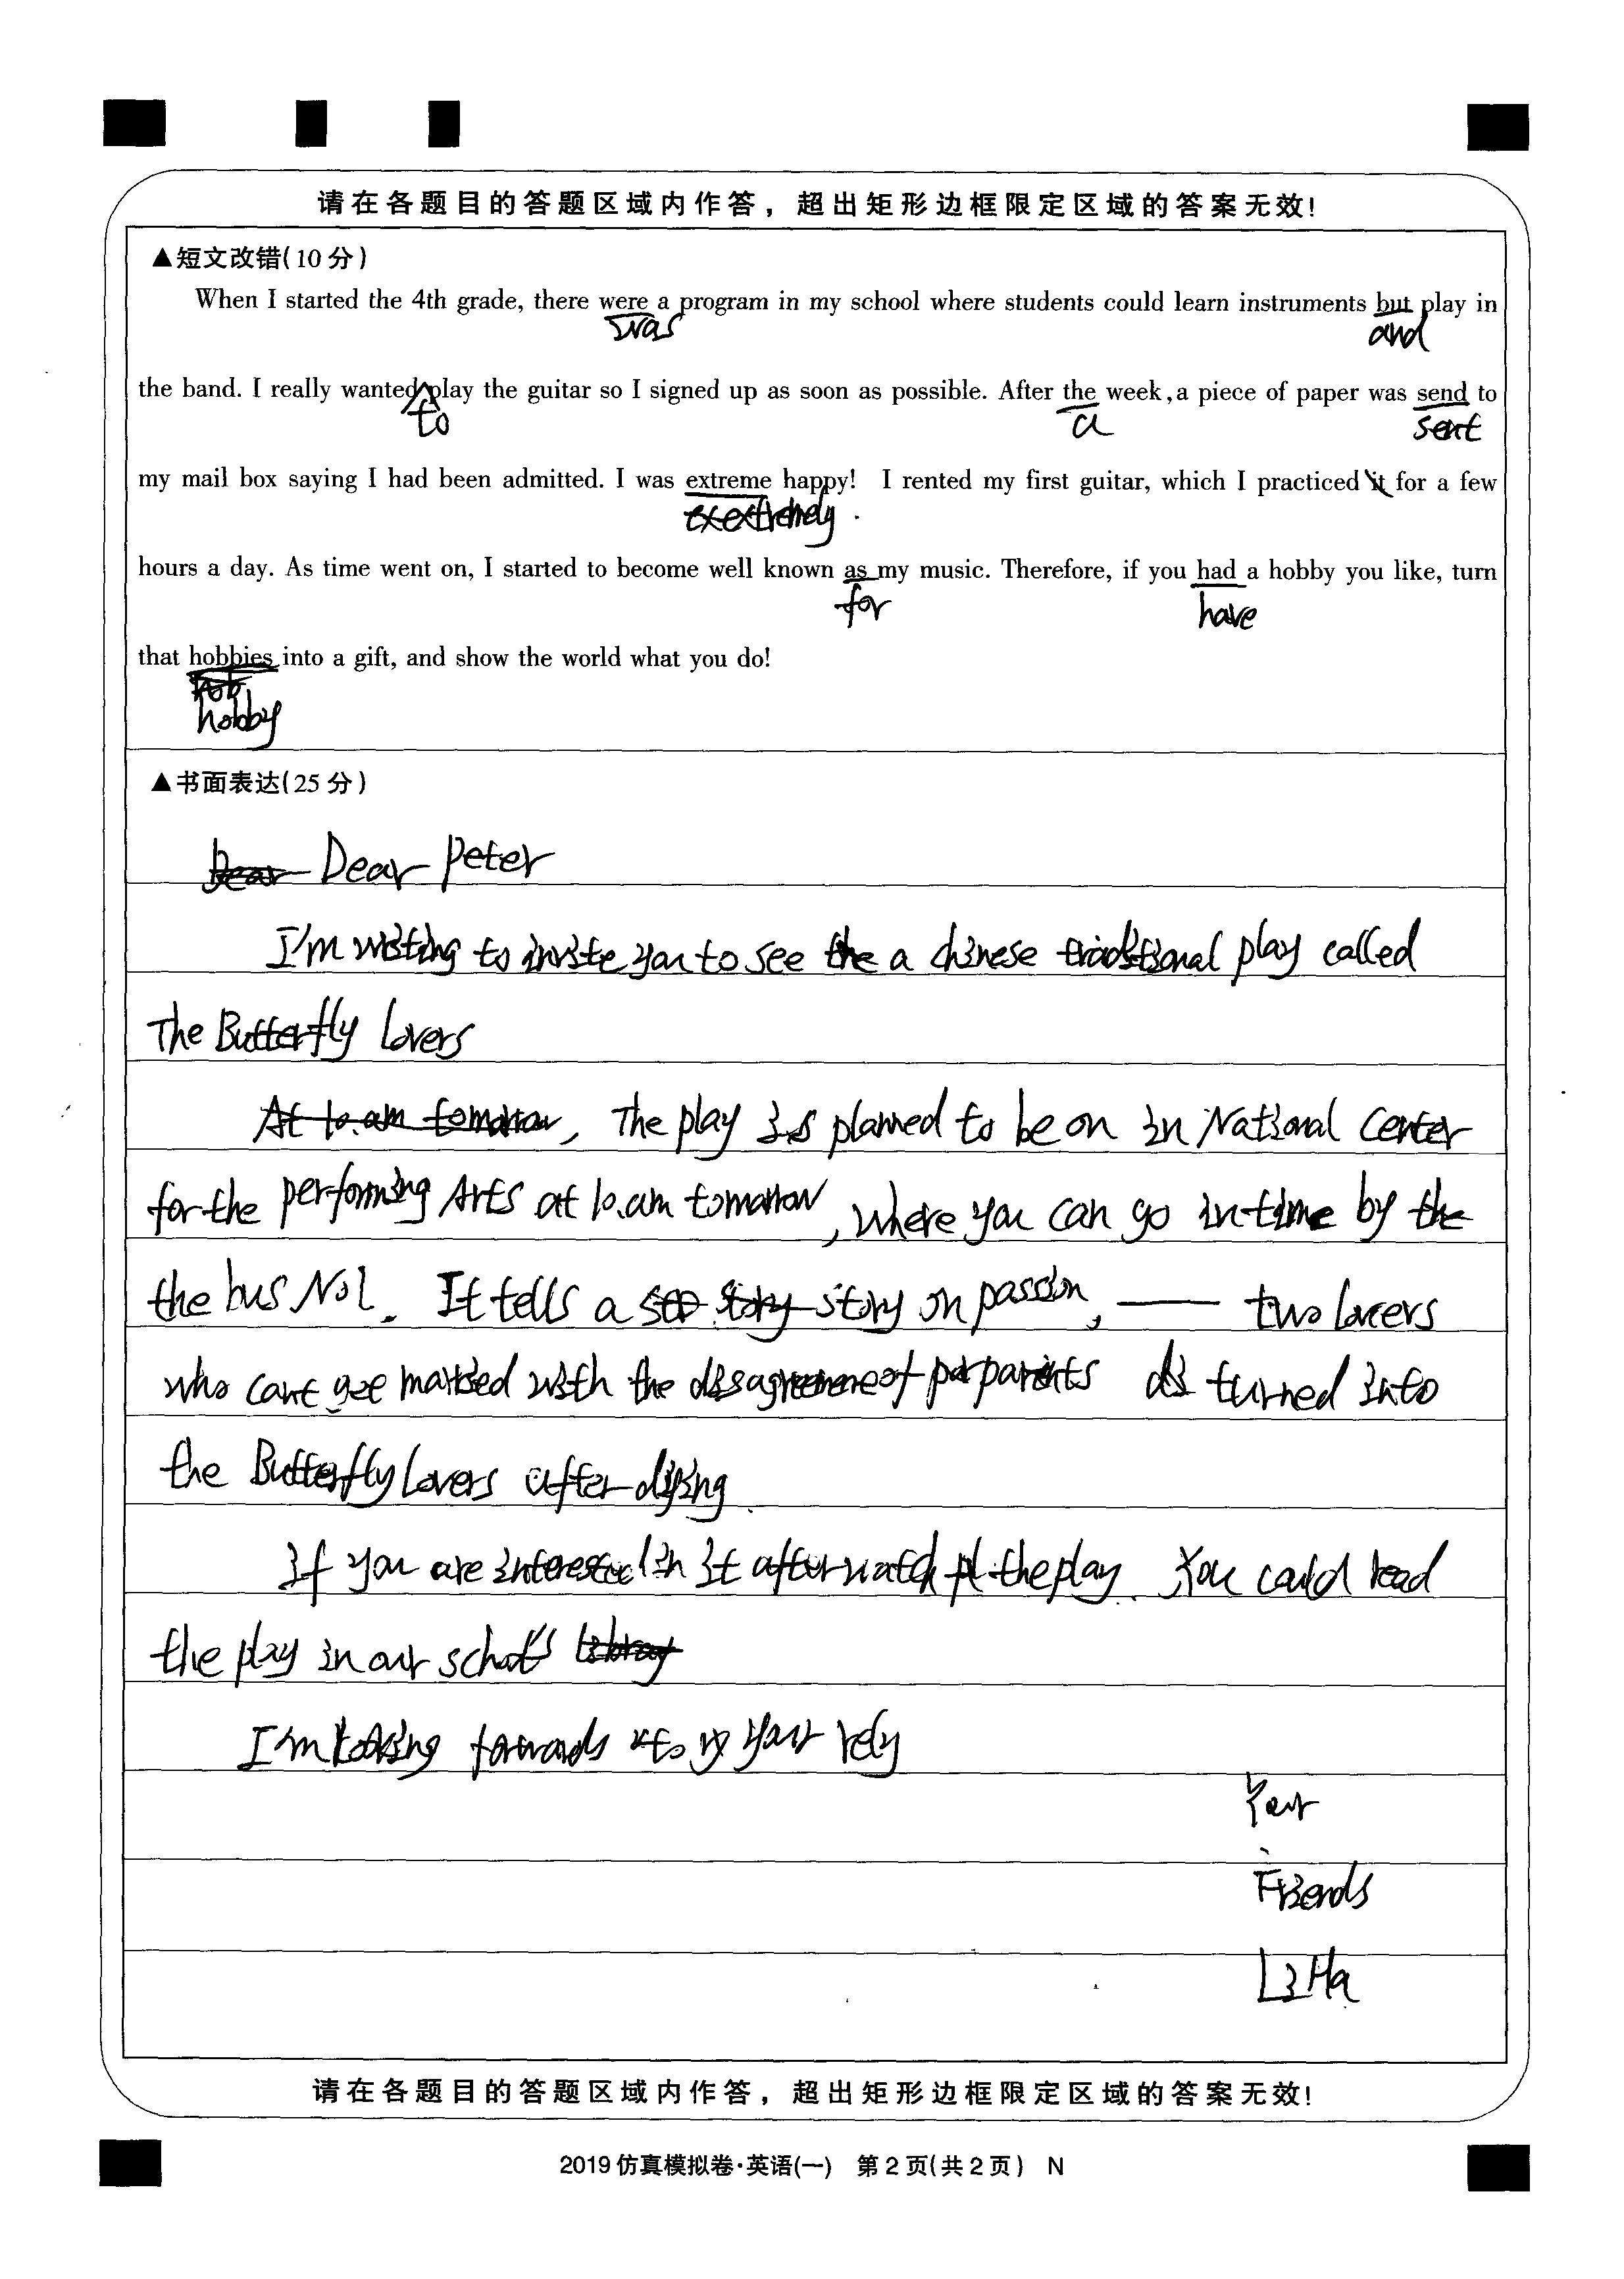 请在各题目的答题区域内作答，超出矩形边框限定区域的答案无效！
▲短文改错(10分)
When I started the 4th grade, there were a program in my school where students could learn instruments but play in
was and
the band. I really wanted play the guitar so I signed up as soon as possible. After the week, a piece of paper was send to
to a sent
my mail box saying I had been admitted. I was extreme happy! I rented my first guitar, which I practiced it for a few
extremely
hours a day. As time went on, I started to become well known as my music. Therefore, if you had a hobby you like, turn
for have
that hobbies into a gift, and show the world what you do!
hobby
▲书面表达(25分)
Dear Peter
I'm writing to invite you to see a chinese traditional play called
The Butterfly Lovers
The play is planned to be on in National Center
for the performing Arts at 10.am tomorrow, where you can go in time by the
the bus No1. It tells a story on passion, —— two lovers
who cant get married with the disagreement parents turned into
the Butterfly Lovers after dying
If you are interested in it after watch the play. You could read
the play in our school's library
I'm looking forwards to your rely
Your
Friends
Li Ha
请在各题目的答题区域内作答，超出矩形边框限定区域的答案无效！
2019仿真模拟卷·英语(一) 第2页(共2页) N